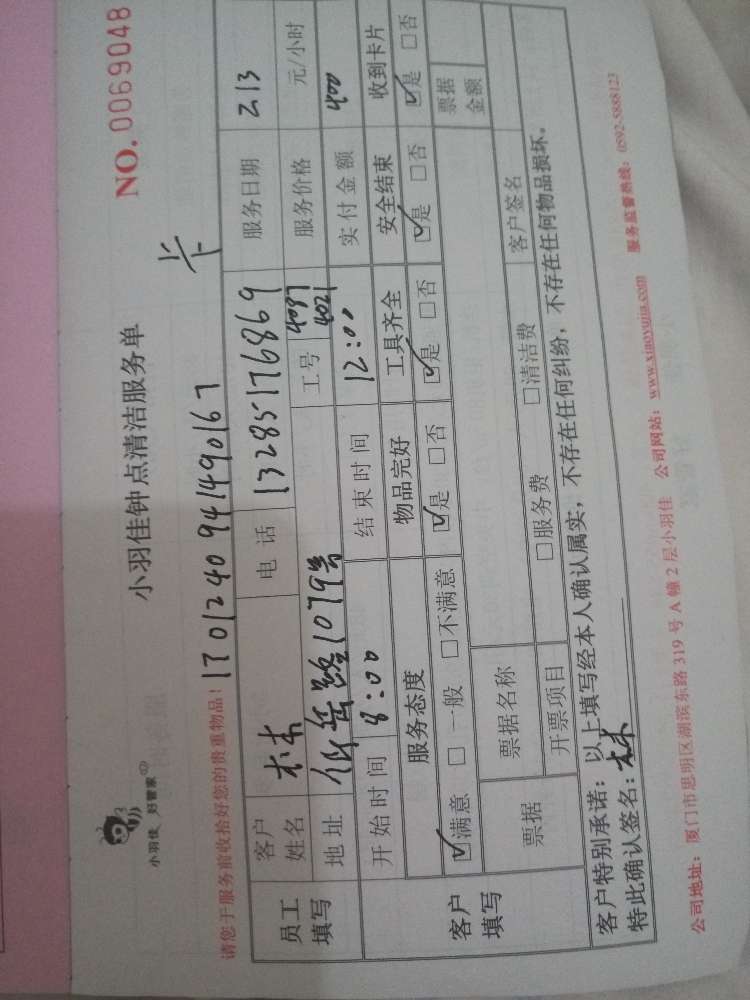 小羽佳 好管家
小羽佳钟点清洁服务单
NO. 0069048
请您于服务前收拾好您的贵重物品! 1701240941490167 卡
员工填写 客户姓名 林 电话 13285176869 服务日期 213
地址 1079号 工号 4037 4021 服务价格 元/小时
开始时间 8:00 结束时间 12:00 实付金额 400
客户填写 服务态度 物品完好 工具齐全 安全结束 收到卡片
☑满意 □一般 □不满意 ☑是 □否 ☑是 □否 ☑是 □否 ☑是 □否
票据 票据名称 票据金额
开票项目 □服务费 □清洁费 客户签名
客户特别承诺:以上填写经本人确认属实,不存在任何纠纷,不存在任何物品损坏。
特此确认签名:林
公司地址:厦门市思明区湖滨东路319号A幢2层小羽佳 公司网站:www.xiaoyujia.com 服务监督热线:0592-5888123